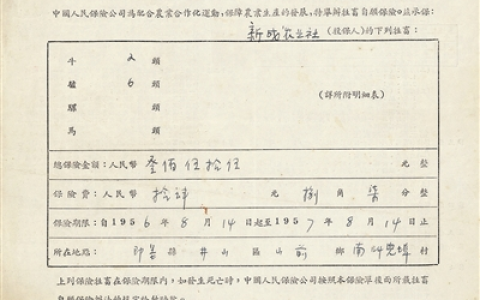 中國人民保險公司為配合農業合作化運動，保障農業生產的發展，特舉辦牲畜自願保險。茲承保：
新成农业社 (投保人)的下列牲畜：
牛 2 頭
驢 6 頭
騾 頭
馬 頭
(詳附附明細表)
總保險金額：人民幣 叁佰伍拾伍 元 整
保險費：人民幣 拾肆 元 捌 角 柒 分整
保險期限：自1956年8月14日起至1957年8月14日止
所在地點： 即墨 縣 井山 區 山前 鄉 村
上列保險牲畜在保險期限內，如發生死亡時，中國人民保險公司按照本保險單後面所載牲畜